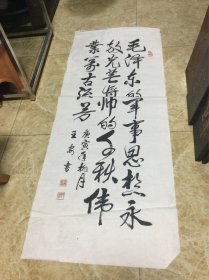 毛泽东的军事思想永
放光芒将帅的千秋伟
业万古流芳
庚寅年桃月
王安书